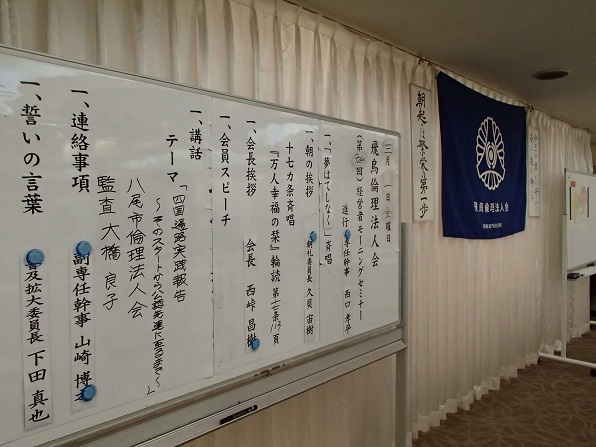 三月 一日(金曜日)
飛鳥倫理法人会
経営者モーニングセミナー
進行 専任幹事 西口
一、「夢はてしなく」斉唱
一、朝の挨拶 朝礼委員長 久貝 宙樹
十七カ条斉唱
『万人幸福の栞』輪読 第十七条113頁
一、会長挨拶 会長 西峠 昌樹
一、会員スピーチ
一、講話
テーマ「四国遍路実践報告
～そのスタートから公認先達に至るまで～」
八尾市倫理法人会
監査 大橋 良子
一、連絡事項 副専任幹事 山崎 博
一、誓いの言葉 普及拡大委員長 下田 真也
朝起きは繁栄の第一歩
飛鳥倫理法人会